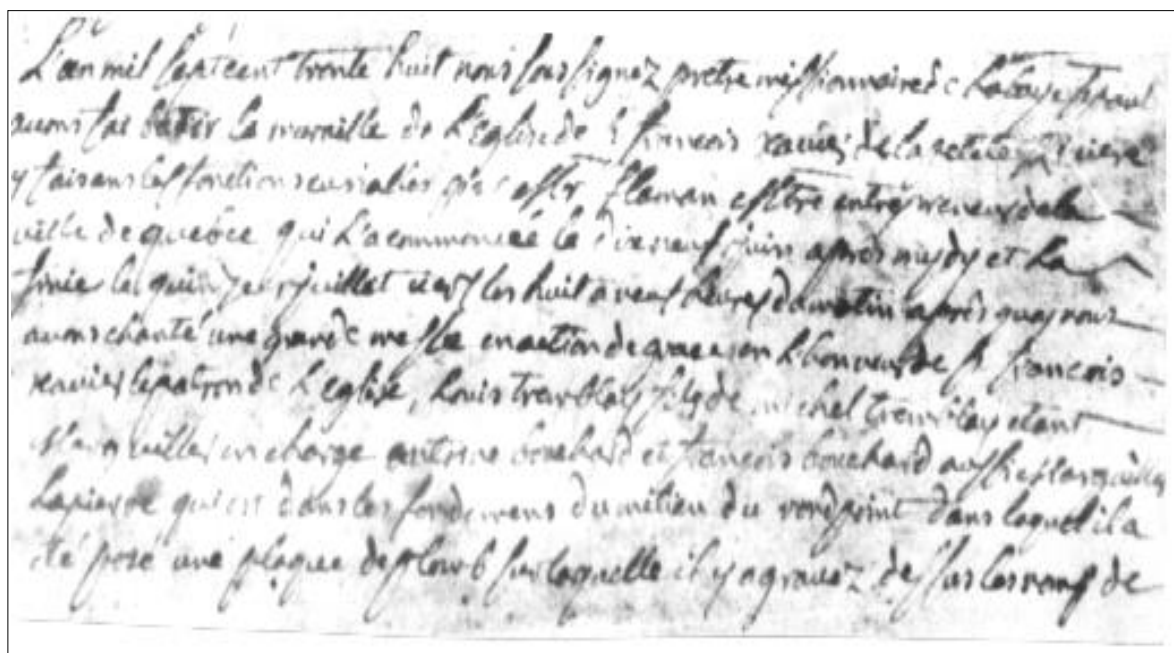 L'an mil sept cent trente huit nous soussignez pretre missionnaire de La baye st paul
avons fai batir la muraille de L'Eglise de s francois xavier de la petite Riviere
y faisans les fonctions curialles par Flaman entrepreneur de la
ville de quebec qui L'a commencée le dix neuf juin apres mydy et La
finie le quinze juillet vers les huit a neuf heures du matin apres quoy nous
avons chanté une grande messe en action de grace en L'honneur de st francois
xavier le patron de L'eglise, Louis tremblay fils de michel tremblay etant
Marguillier en charge antoine bouchard et francois bouchard aussi Marguilliers
La pierre qui est dans les fondemens du milieu du rondpoint dans laquel il a
été posé une plaque de plomb sur laquelle il y a gravez dessus les noms de